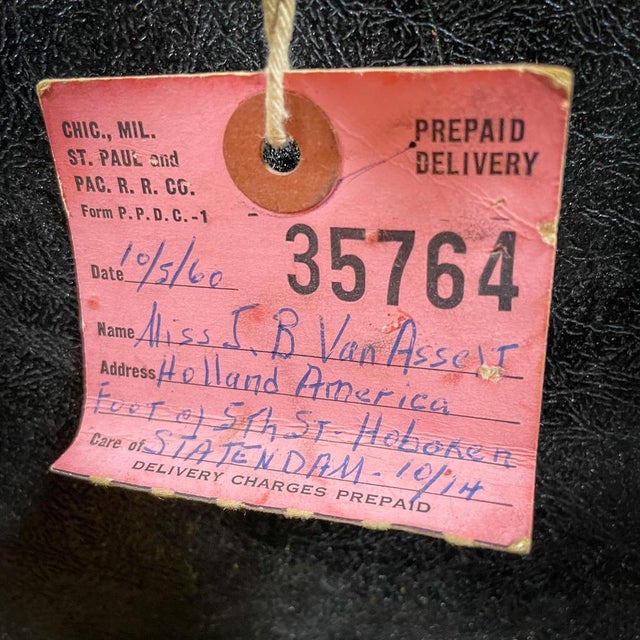 CHIC., MIL.
ST. PAUL and
PAC. R. R. CO.
Form P.P.D.C.-1
PREPAID
DELIVERY
35764
Date 10/5/60
Name Miss J. B Van Asselt
Address Holland America
Foot of 5th St- Hoboken
Care of STATENDAM - 10/14
DELIVERY CHARGES PREPAID